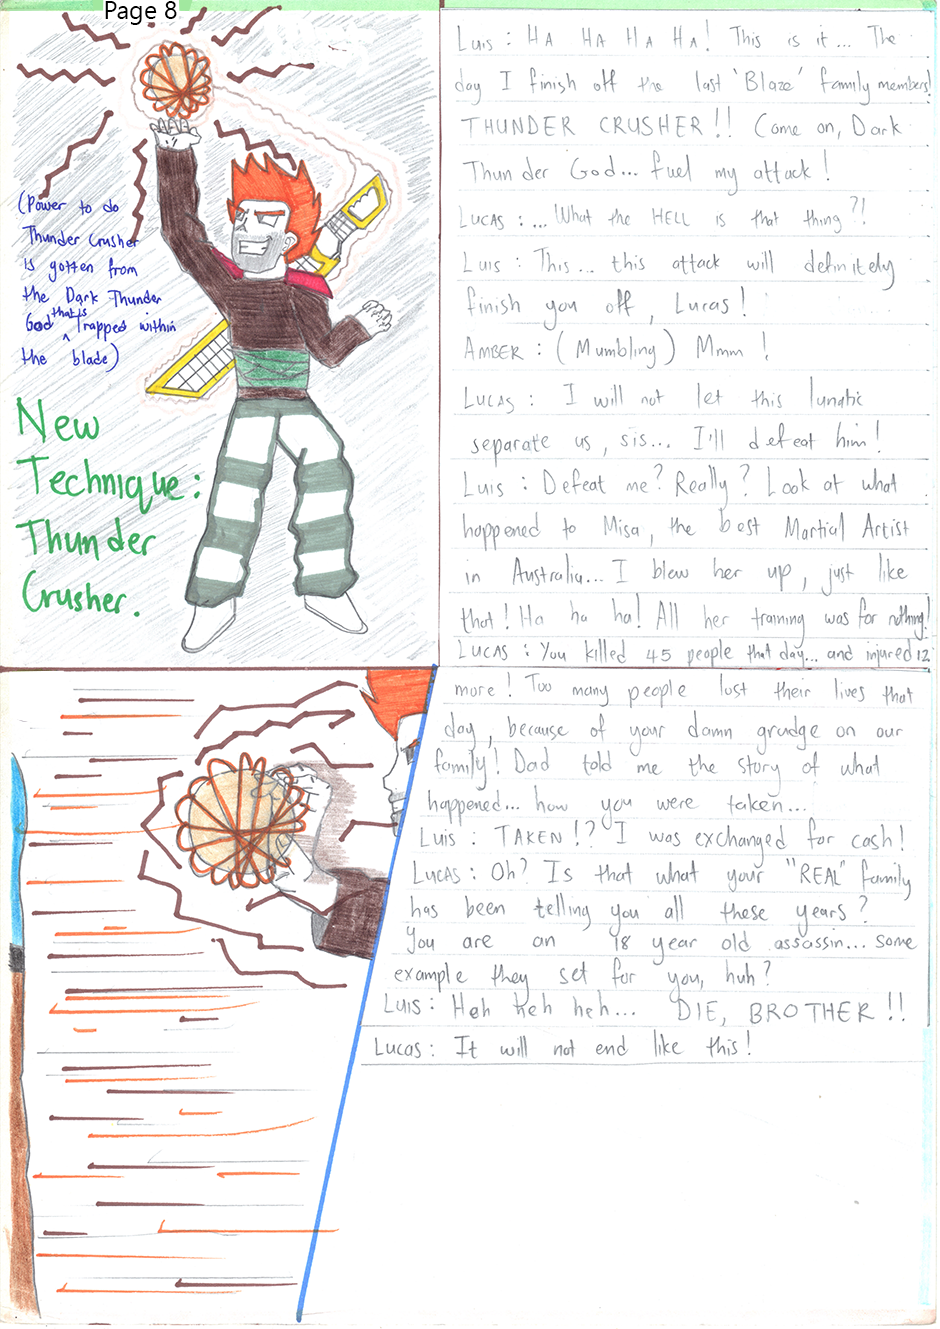 Page 8
(Power to do
Thunder Crusher
is gotten from
the Dark Thunder
God that is trapped within
the blade)
New
Technique:
Thunder
Crusher.
Luis: HA HA HA HA! This is it... The
day I finish off the last 'Blaze' family members!
THUNDER CRUSHER!! Come on, Dark
Thunder God... fuel my attack!
Lucas: ...What the HELL is that thing?!
Luis: This... this attack will definitely
finish you off, Lucas!
AMBER: (Mumbling) Mmm!
Lucas: I will not let this lunatic
separate us, sis... I'll defeat him!
Luis: Defeat me? Really? Look at what
happened to Misa, the best Martial Artist
in Australia... I blew her up, just like
that! Ha ha ha! All her training was for nothing!
LUCAS: You killed 45 people that day... and injured 12
more! Too many people lost their lives that
day, because of your damn grudge on our
family! Dad told me the story of what
happened... how you were taken...
Luis: TAKEN!? I was exchanged for cash!
Lucas: Oh? Is that what your "REAL" family
has been telling you all these years?
You are an 18 year old assassin... some
example they set for you, huh?
Luis: Heh heh heh... DIE, BROTHER!!
Lucas: It will not end like this!